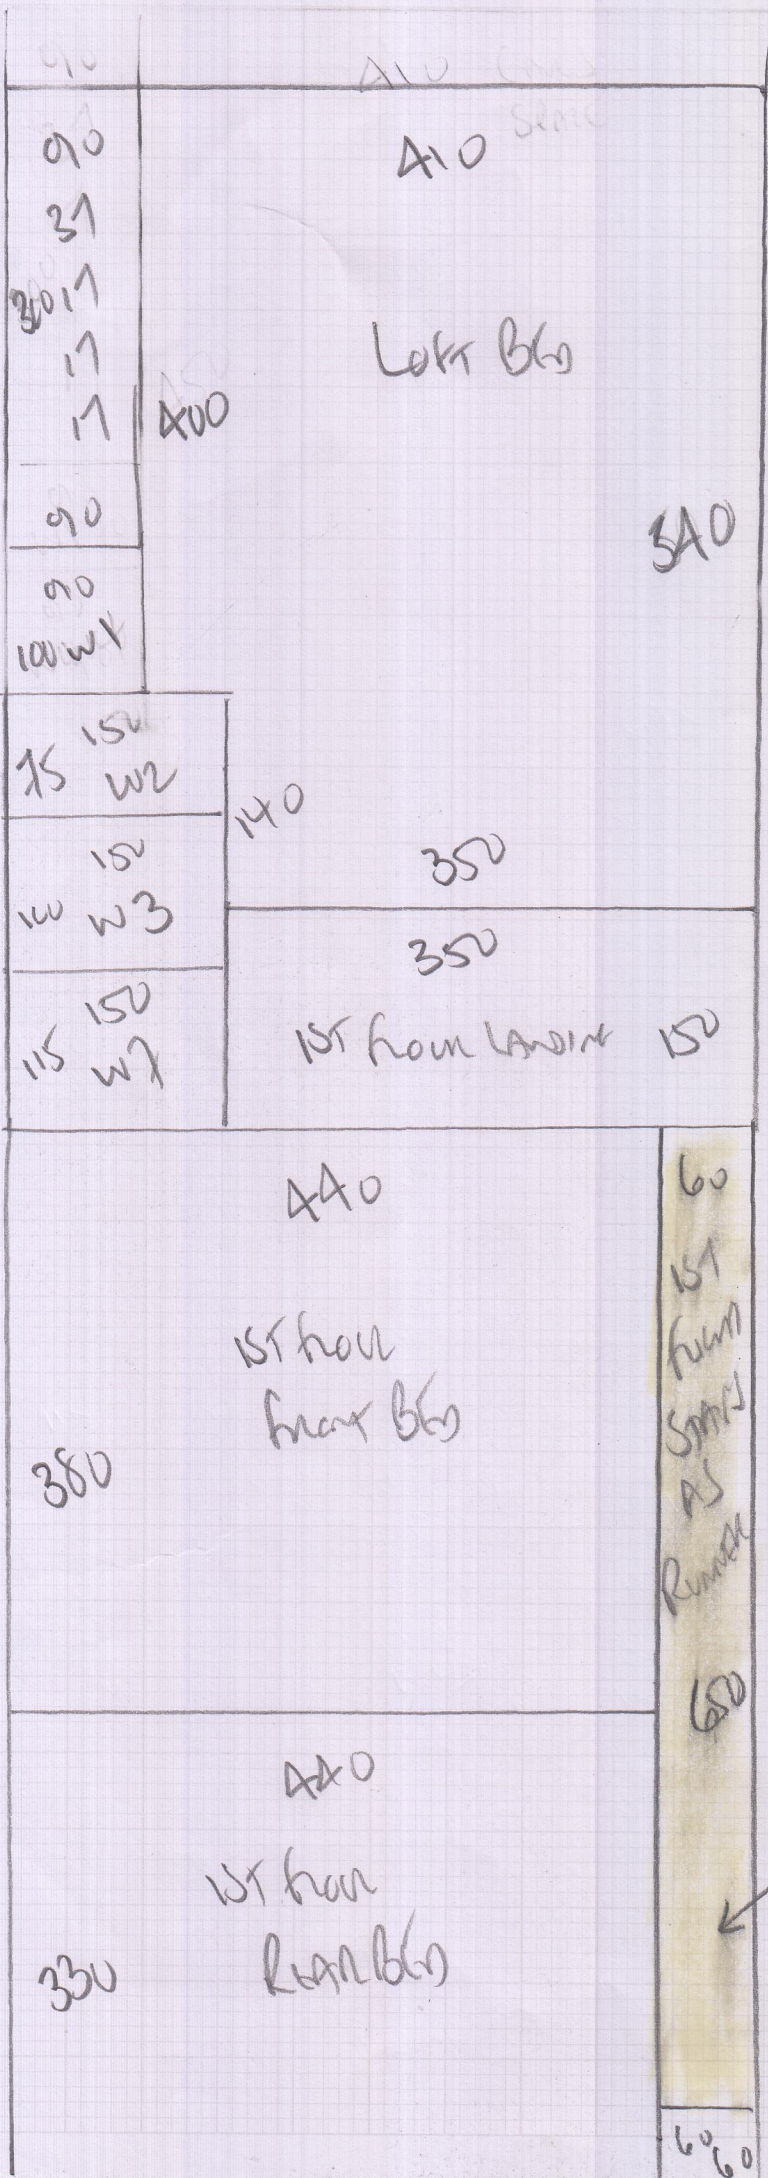 90
410
90
410
37
17
17
17
400
LOFT BED
90
540
90
100 W1
150
75 W2
140
150
100 W3
350
350
150
115 W7
1ST FLOOR LANDING 150
440
60
1ST
FLOOR
STAIRS
AS
RUNNER
650
1ST FLOOR
FRONT BED
380
440
1ST FLOOR
REAR BED
330
60
60